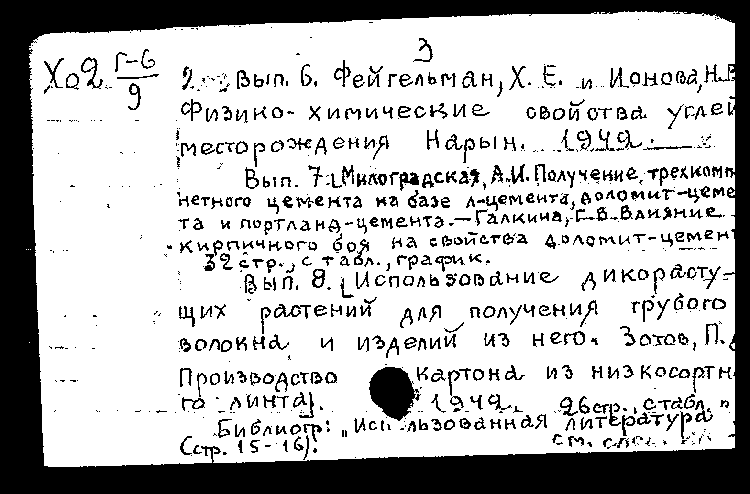 3
Хо2 Г-6/9
2 Вып. 6. Фейгельман, Х. Е. и Ионова, Н. В
Физико-химические свойства углей
месторождения Нарын. 1949.
Вып. 7. [Милоградская, А.И. Получение трехкомп
нетного цемента на базе л-цемента, доломит-цеме
та и портланд-цемента.—Галкина, Г.В. Влияние
кирпичного боя на свойства доломит-цемент
32 стр., с табл., график.
Вып. 8. [Использование дикорасту-
щих растений для получения грубого
волокна и изделий из него. Зотов, П.
Производство картона из низкосортн
го линта]. 1949. 26 стр., с табл.
Библиогр: "Использованная литература
(стр. 15-16).
см. след.